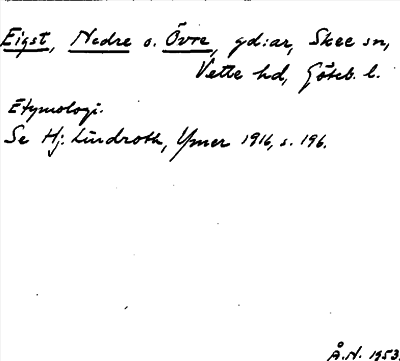 Eigst, Nedre o. Övre, gd:ar, Skee sn,
Vette hd, Göteb. l.
Etymologi.
Se Hj. Lindroth, Ymer 1916, s. 196.
Å.N. 1953.